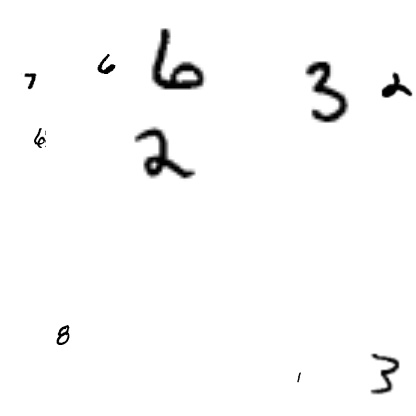 7 6 6 3 2
6 2
8
1 3